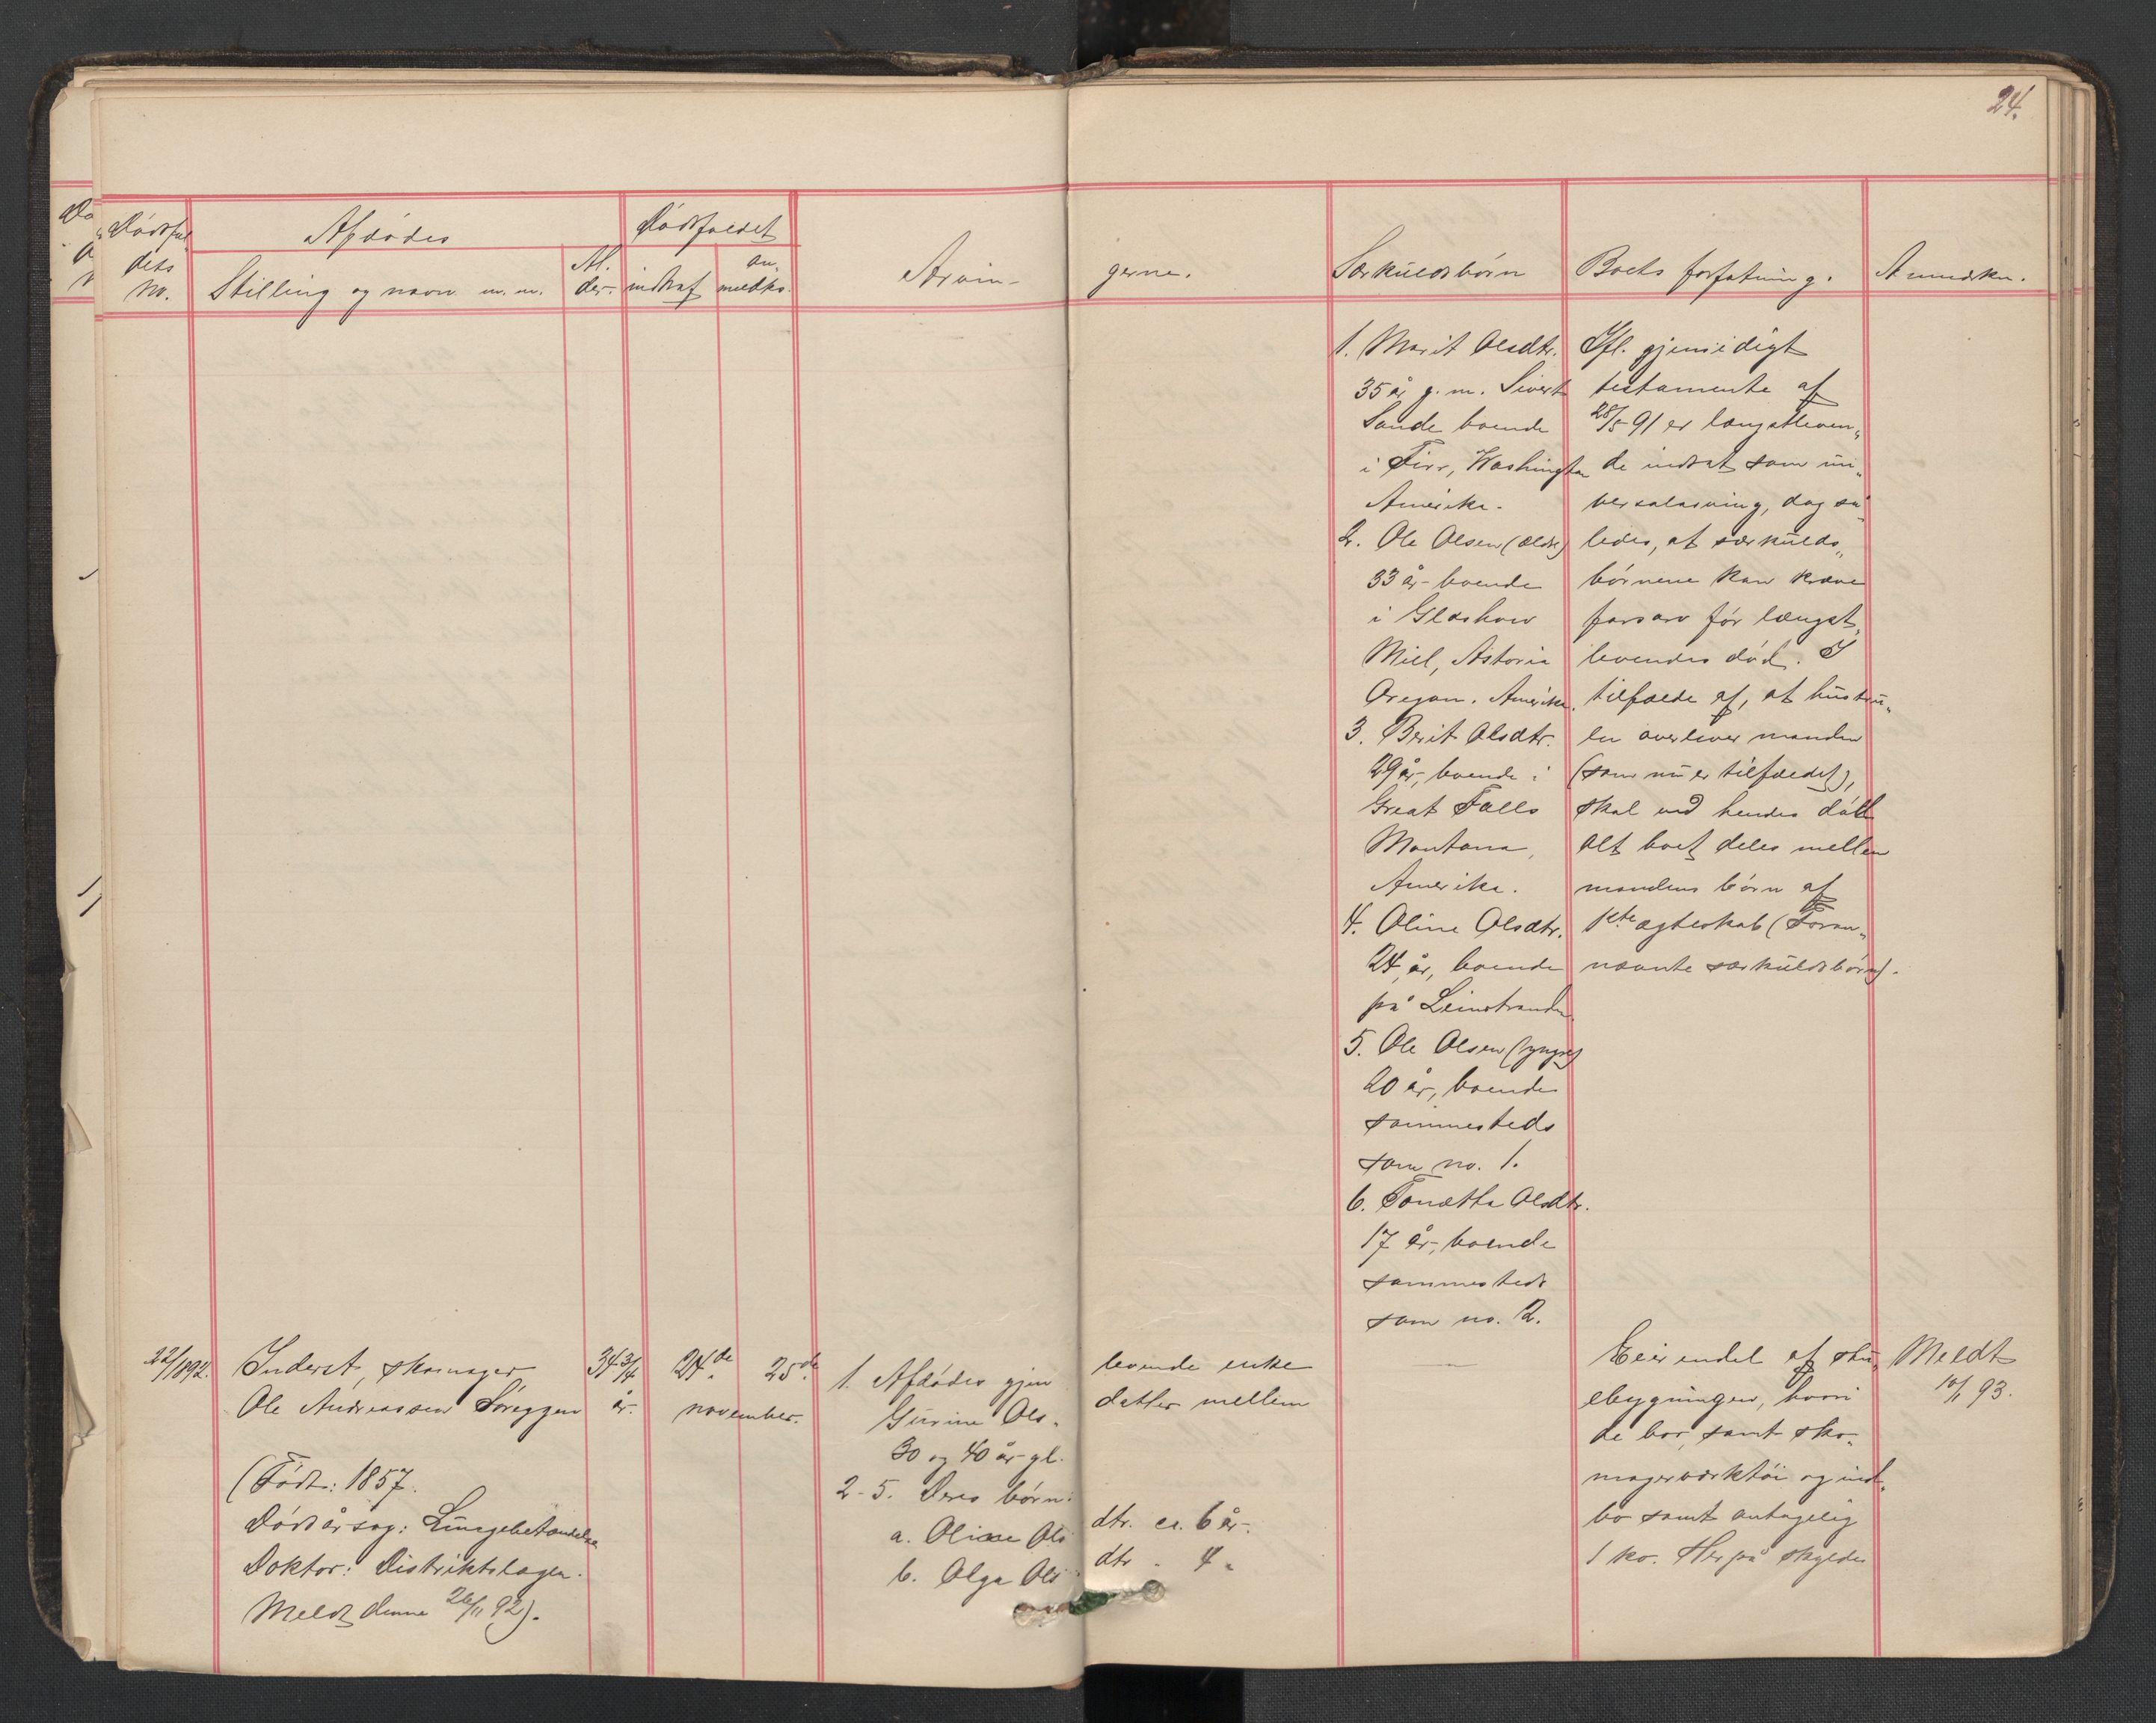 24.
Dødsfal-
dets
no.
Afdødes
Stilling og navn m. m.
Al-
der.
Dødsfaldet
indtraf
an-
meldtes.
Arvin-
gerne.
Særkuldsbørn
Boets forfatning.
Anmærkn.
1. Marit Olsdtr.
35 år g. m. Sivert
Sande boende
i Firr, Washington
Amerika.
2. Ole Olsen (ældre)
33 år boende
i Glashow
Mill, Astoria
Oregon. Amerika.
3. Berit Olsdtr.
29 år, boende i
Great Falls
Montana,
Amerika.
4. Oline Olsdtr.
24 år, boende
på Leinstranden.
5. Ole Olsen (yngre)
20 år, boende
sammesteds
som no. 1.
6. Tonætta Olsdtr.
17 år, boende
sammesteds
som no. 2.
Ifl. gjensidigt
testamente af
28/5 91 er længstleven-
de indsat som uni-
versalarving, dog så-
ledes, at særkulds-
børnene kan kræve
farsarv før længst-
levendes død. I
tilfælde af, at hustru-
en overlever manden
(som nu er tilfældet),
skal ved hendes død
alt boet deles mellem
mandens børn af
1ste ægteskab (Foran-
nævnte særkuldsbørn).
22/1892.
Inderst, skomager
Ole Andreassen Søreggen
(Født: 1857.
Dødsårsag: Lungebetændelse
Doktor: Distriktslægen.
Meldt denne 26/11 92).
34 3/4
år.
24de
november.
25de
1. Afdødes gjen levende enke
Gurine Ols- datter mellem
30 og 40 år gl.
2-5. Deres børn:
a. Oline Ols dtr. ca. 6 år.
b. Olga Ols dtr " 4 "
—
Eierendel af stu-
ebygningen, hvori
de bor, samt sko-
magerværktøi og ind-
bo samt antagelig
1 ko. Herpå skyldes
Meldt
10/1 93.